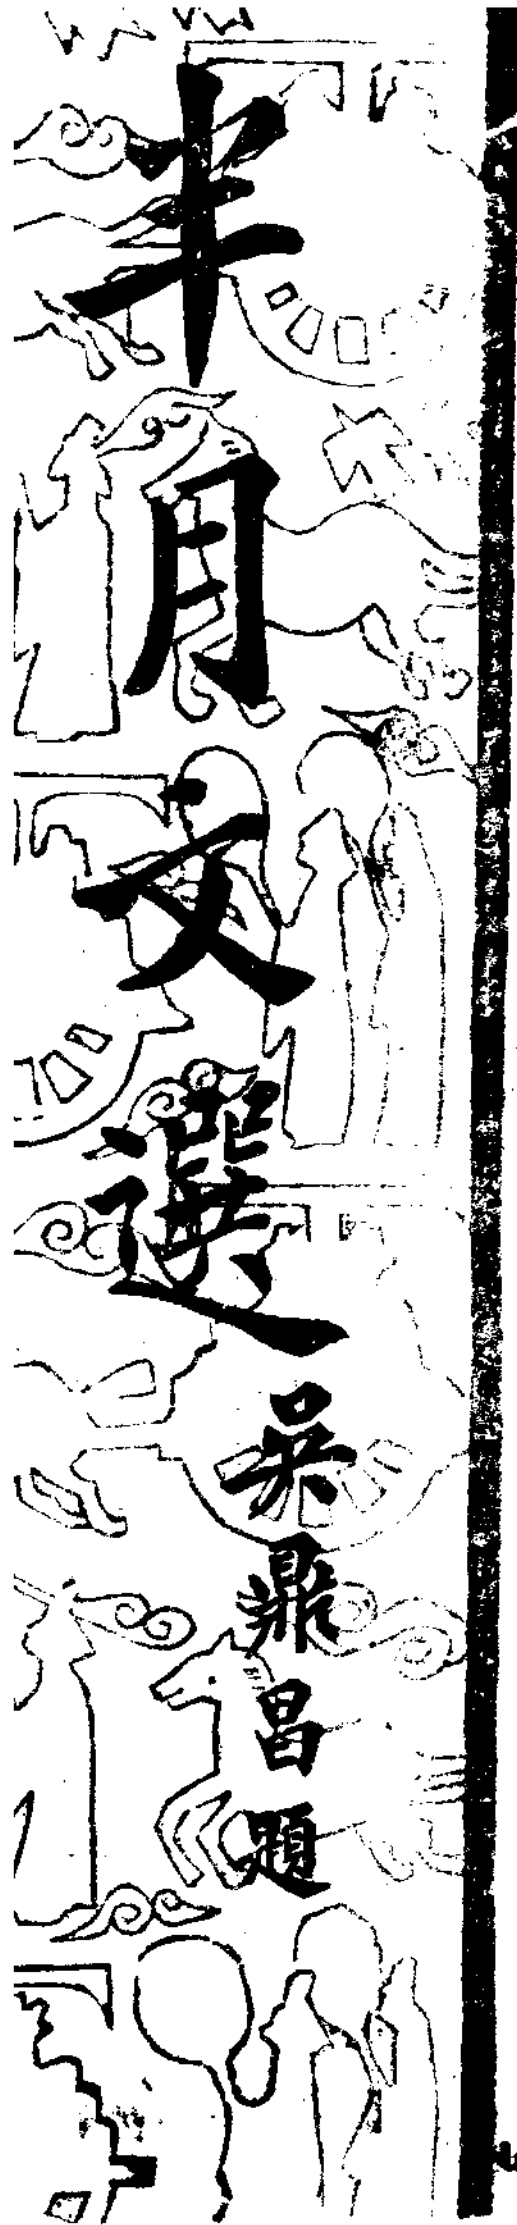 半月文選
吳鼎昌題